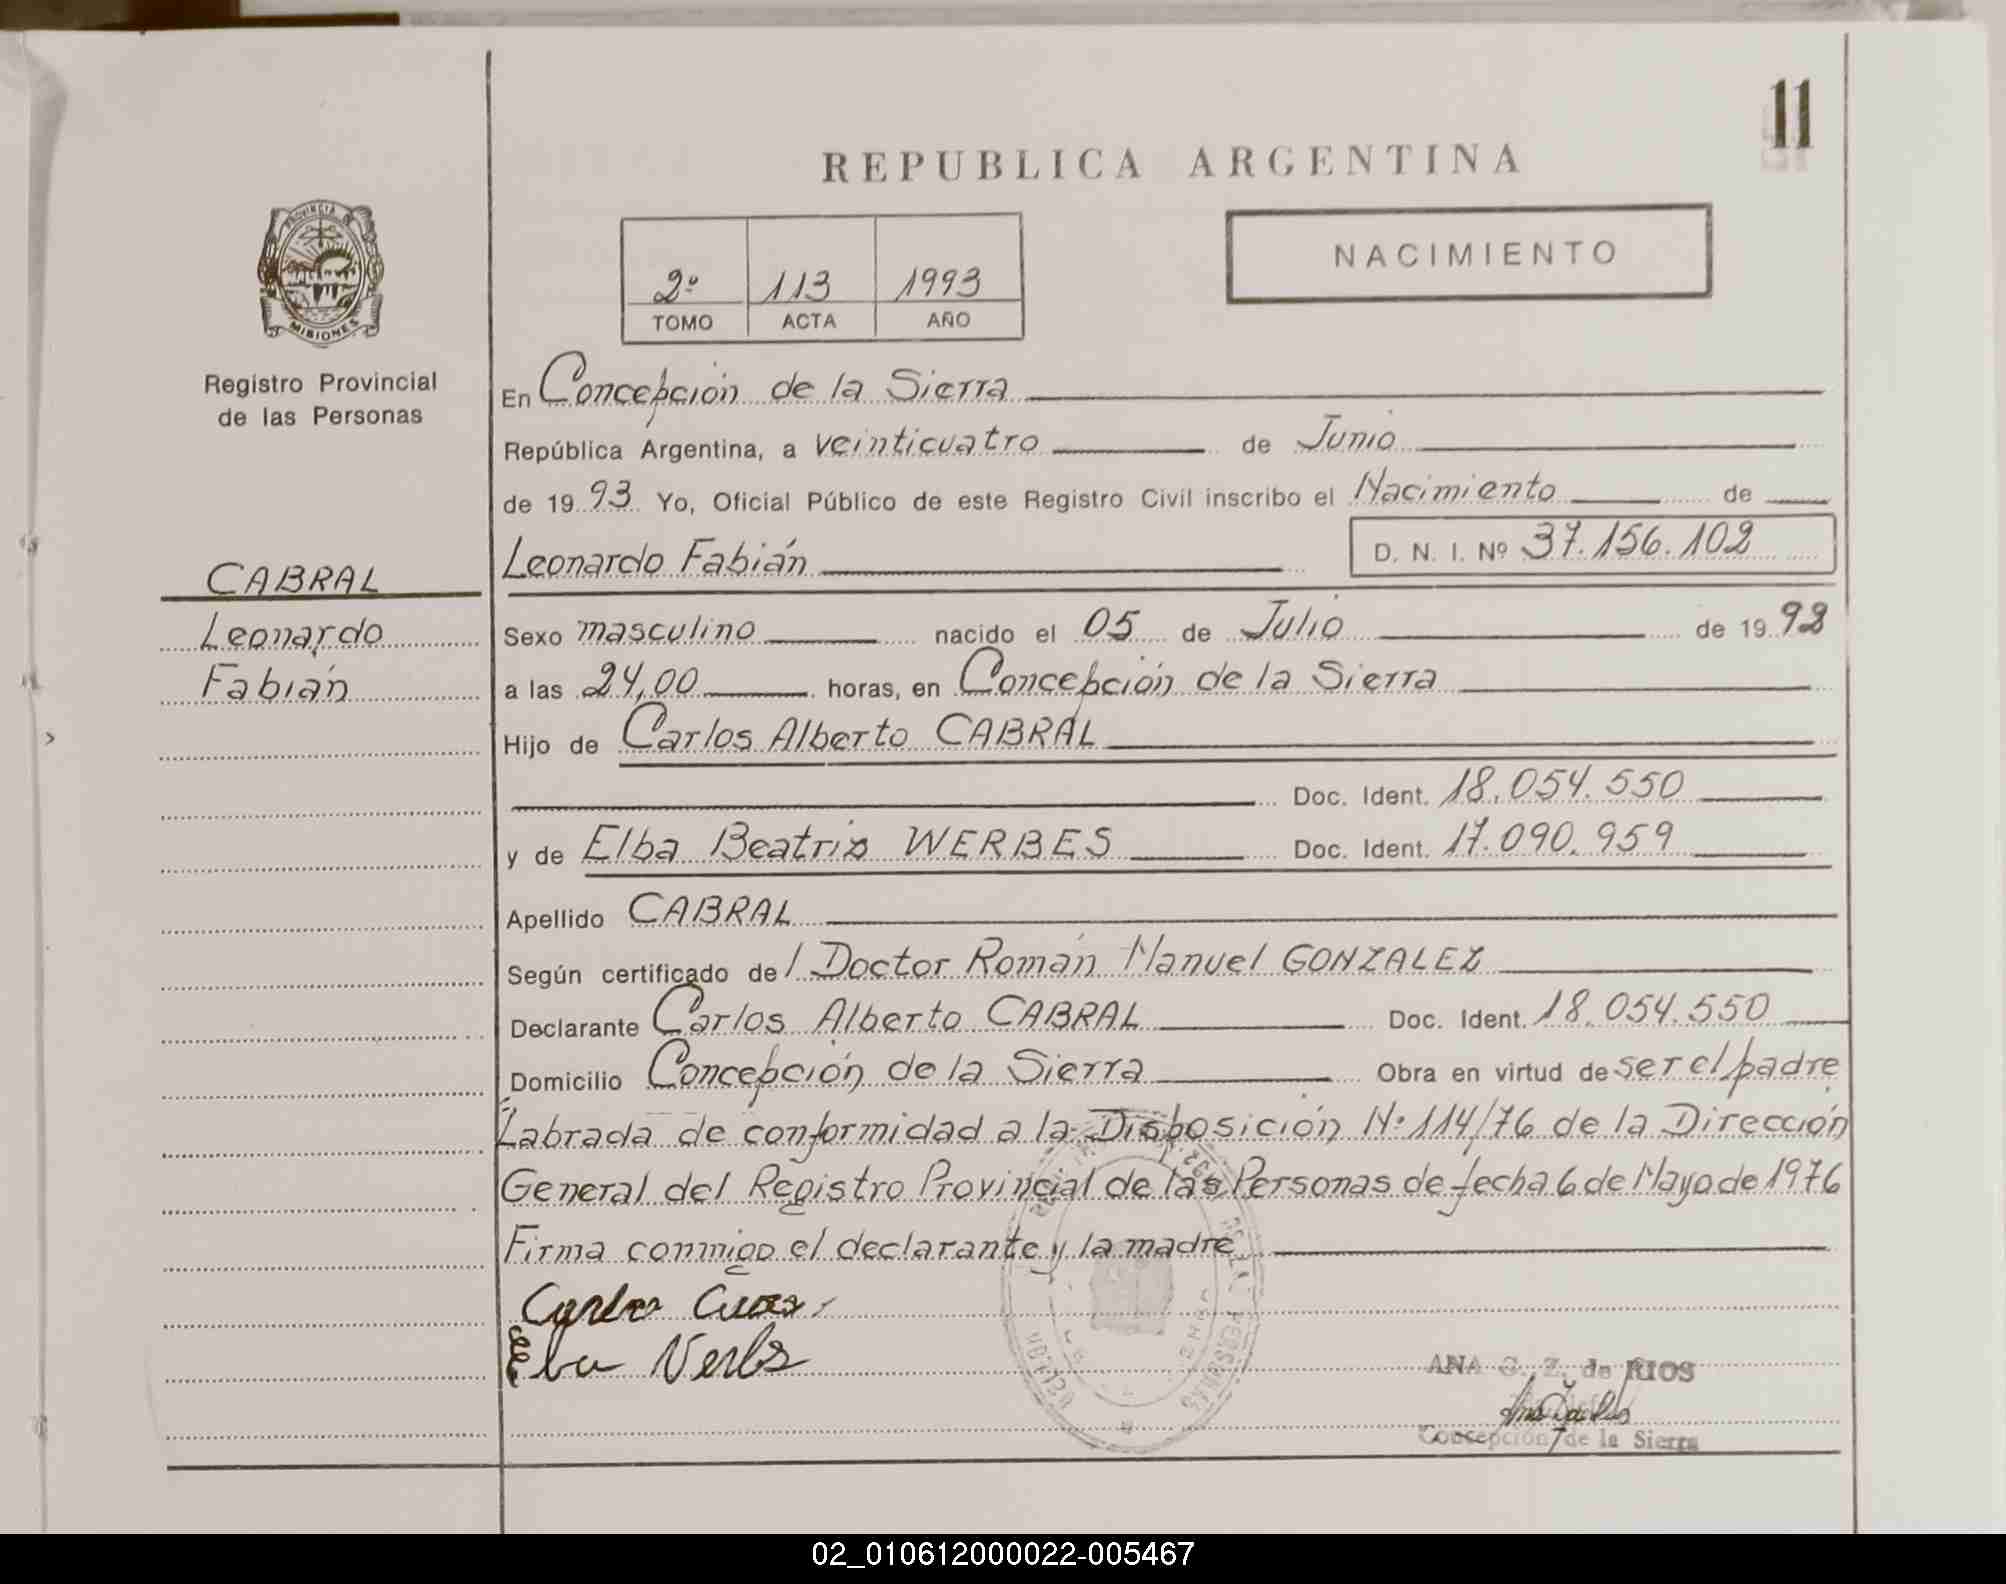 11
REPUBLICA ARGENTINA
PROVINCIA DE
MISIONES
2º 113 1993
TOMO ACTA AÑO
NACIMIENTO
Registro Provincial
de las Personas
CABRAL
Leonardo
Fabián
En Concepción de la Sierra
República Argentina, a veinticuatro de Junio
de 19 93 Yo, Oficial Público de este Registro Civil inscribo el Nacimiento de
Leonardo Fabián D. N. I. Nº 37.156.102
Sexo masculino nacido el 05 de Julio de 19 92
a las 24,00 horas, en Concepción de la Sierra
Hijo de Carlos Alberto CABRAL
Doc. Ident. 18.054.550
y de Elba Beatriz WERBES Doc. Ident. 17.090.959
Apellido CABRAL
Según certificado del Doctor Román Manuel GONZALEZ
Declarante Carlos Alberto CABRAL Doc. Ident. 18.054.550
Domicilio Concepción de la Sierra Obra en virtud de ser el padre
Labrada de conformidad a la Disposición Nº 114/76 de la Dirección
General del Registro Provincial de las Personas de fecha 6 de Mayo de 1976
Firma conmigo el declarante y la madre
ANA C. Z. de RIOS
Concepción de la Sierra
02_010612000022-005467